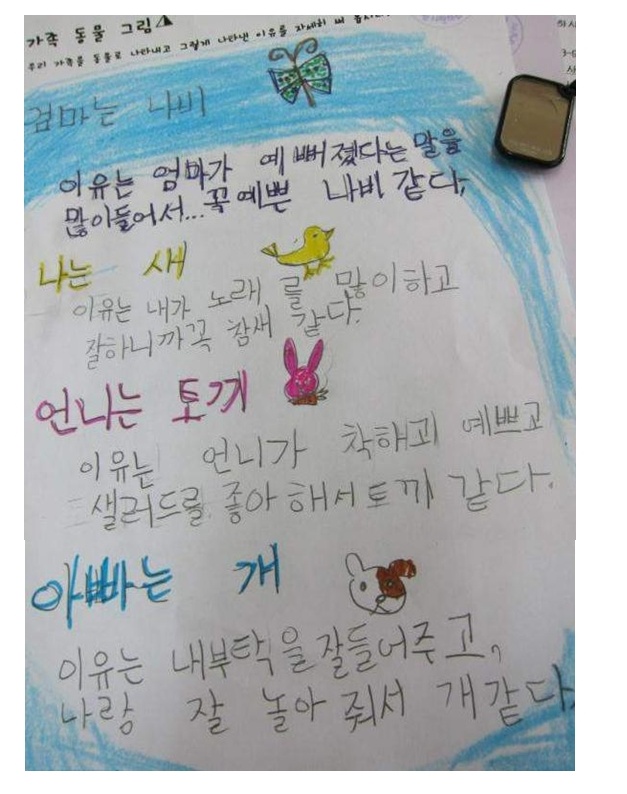 가족 동물 그림
우리 가족을 동물로 나타내고 그렇게 나타낸 이유를 자세히 써
엄마는 나비
이유는 엄마가 예뻐졌다는 말을
많이들어서...꼭예쁜 나비같다,
나는 새
이유는 내가 노래를 많이하고
잘하니까꼭 참새 같다.
언니는 토끼
이유는 언니가 착해고 예쁘고
샐러드를 좋아해서토끼 같다.
아빠는 개
이유는 내부탁을잘들어주고,
나랑 잘 놀아 줘서 개같다.